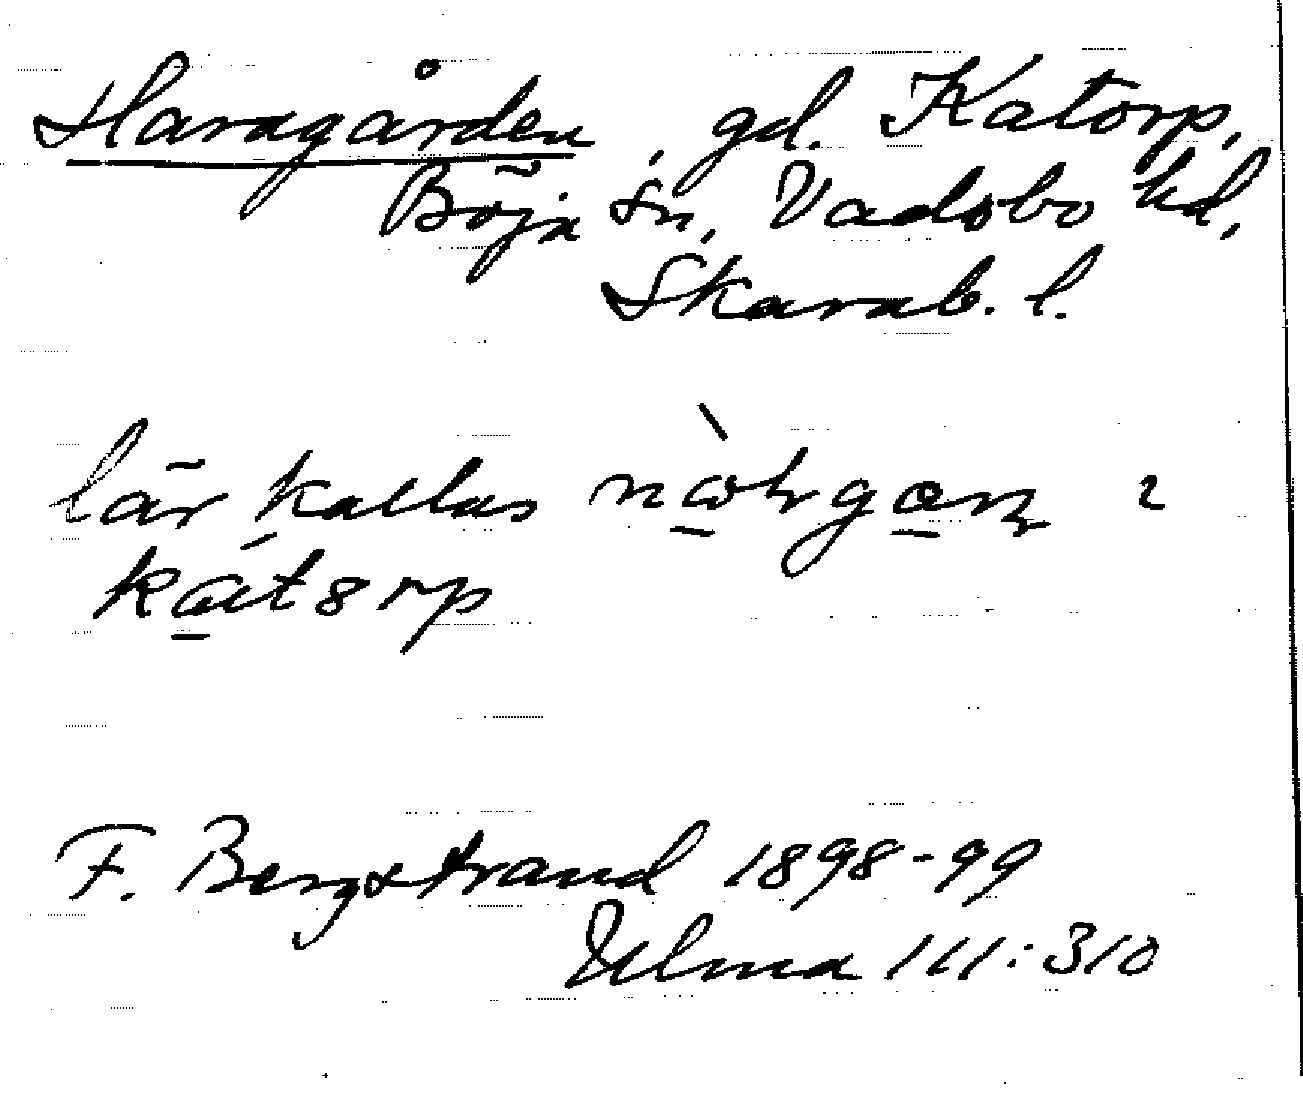 Haragården, gd. Katorp,
Böja sn, Vadsbo hd,
Skarab. l.
lär kallas
F. Bergstrand 1898-99
Ulma 111:310